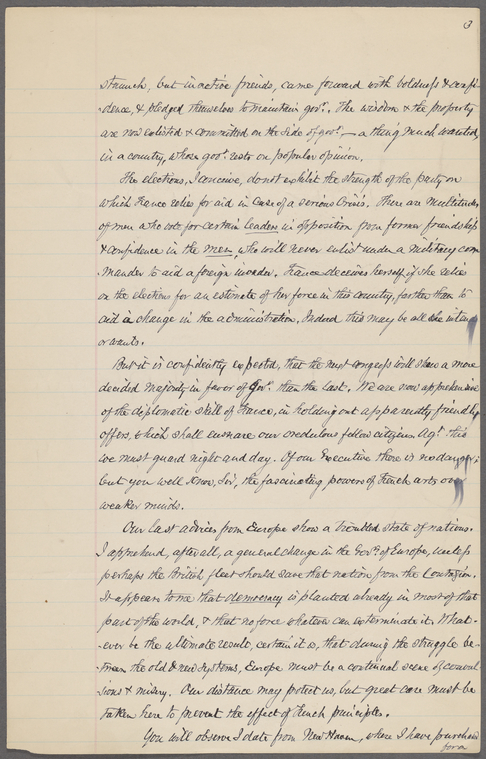 3
staunch, but inactive friends, came forward with boldness & confi-
-dence, & pledged themselves to maintain govt. The wisdom & the property
are now enlisted & committed on the side of govt. — a thing much wanted,
in a country, whose govt. rests on popular opinion.
The elections, I conceive, do not exhibit the strength of the party on
which France relies for aid in case of a serious Crisis. There are multitudes
of men who vote for certain leaders in opposition from former friendship
& confidence in the men, who will never enlist under a military com
mander to aid a foreign invader. France deceives herself, if she relies
on the elections for an estimate of her force in this country, farther than to
aid a change in the administration. Indeed this may be all she intends
or wants.
But it is confidently expected, that the next congress will show a more
decided majority in favor of Govt. than the last. We are now apprehensive
of the diplomatic skill of France, in holding out apparently friendly
offers, which shall ensnare our credulous fellow citizens. Agt. this
we must guard night and day. Of our Executive there is no danger;
but you well know, Sir, the fascinating powers of French arts over
weaker minds.
Our last advices from Europe show a troubled state of nations.
I apprehend, after all, a general change in the Govts. of Europe, unless
perhaps the British fleet should save that nation from the Contagion.
It appears to me that democracy is planted already in most of that
part of the world, & that no force whatever can exterminate it. What-
-ever be the ultimate result, certain it is, that during the struggle be-
-tween the old & new systems, Europe must be a continual scene of convul
-sions & misery. Our distance may protect us, but great care must be
taken here to prevent the effect of French principles.
You will observe I date from New Haven, where I have purchased
for a